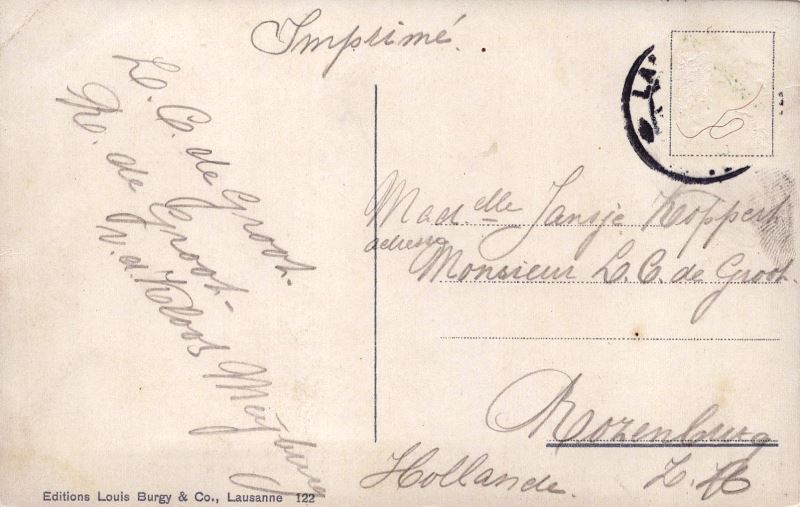 Imprimé.
L. C. de Groot.
R. de Groot.
Kloos Meyburg
LA
Mad.elle Jansje Koppert
adresse
Monsieur L. C. de Groot.
Rozenburg
Hollande. Z.H.
Editions Louis Burgy & Co., Lausanne 122